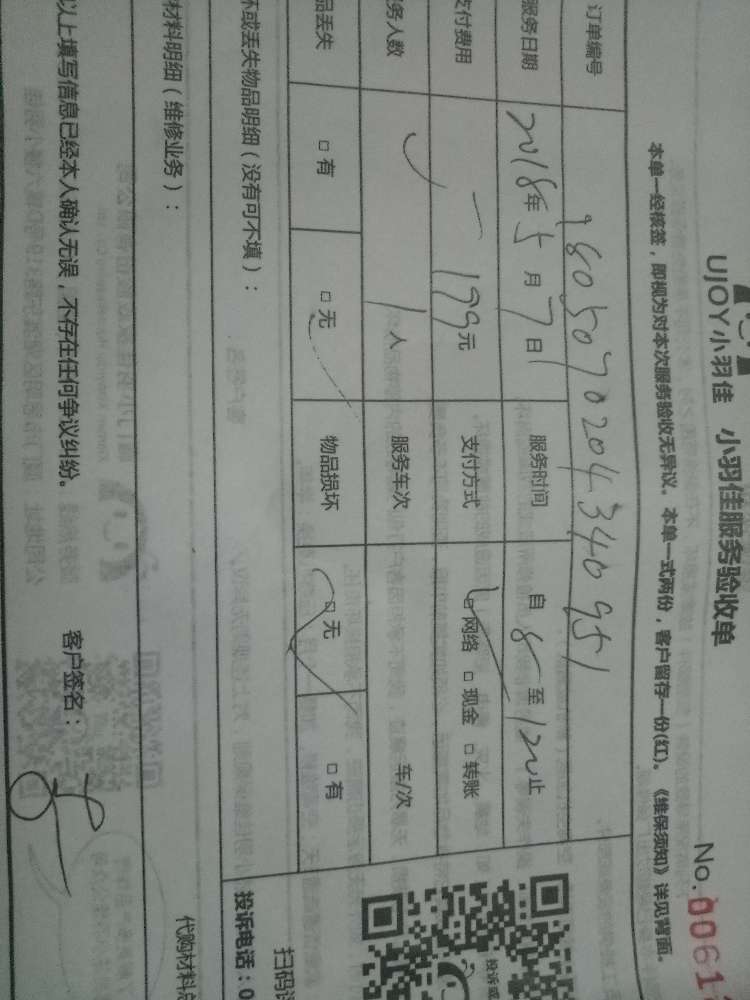 UJOY小羽佳 小羽佳服务验收单 No.0061
本单一经核签，即视为对本次服务验收无异议。本单一式两份，客户留存一份(红)。《维保须知》详见背面。
订单编号 1805070204340951
服务日期 2018年5月7日 服务时间 自8至12止
支付费用 199元 支付方式 网络 现金 转账
务人数 1人 服务车次 车/次
品丢失 有 无 物品损坏 无 有
坏或丢失物品明细（没有可不填）：
扫码
投诉电话：0
材料明细（维修业务）：
代购材料总
以上填写信息已经本人确认无误，不存在任何争议纠纷。 客户签名：